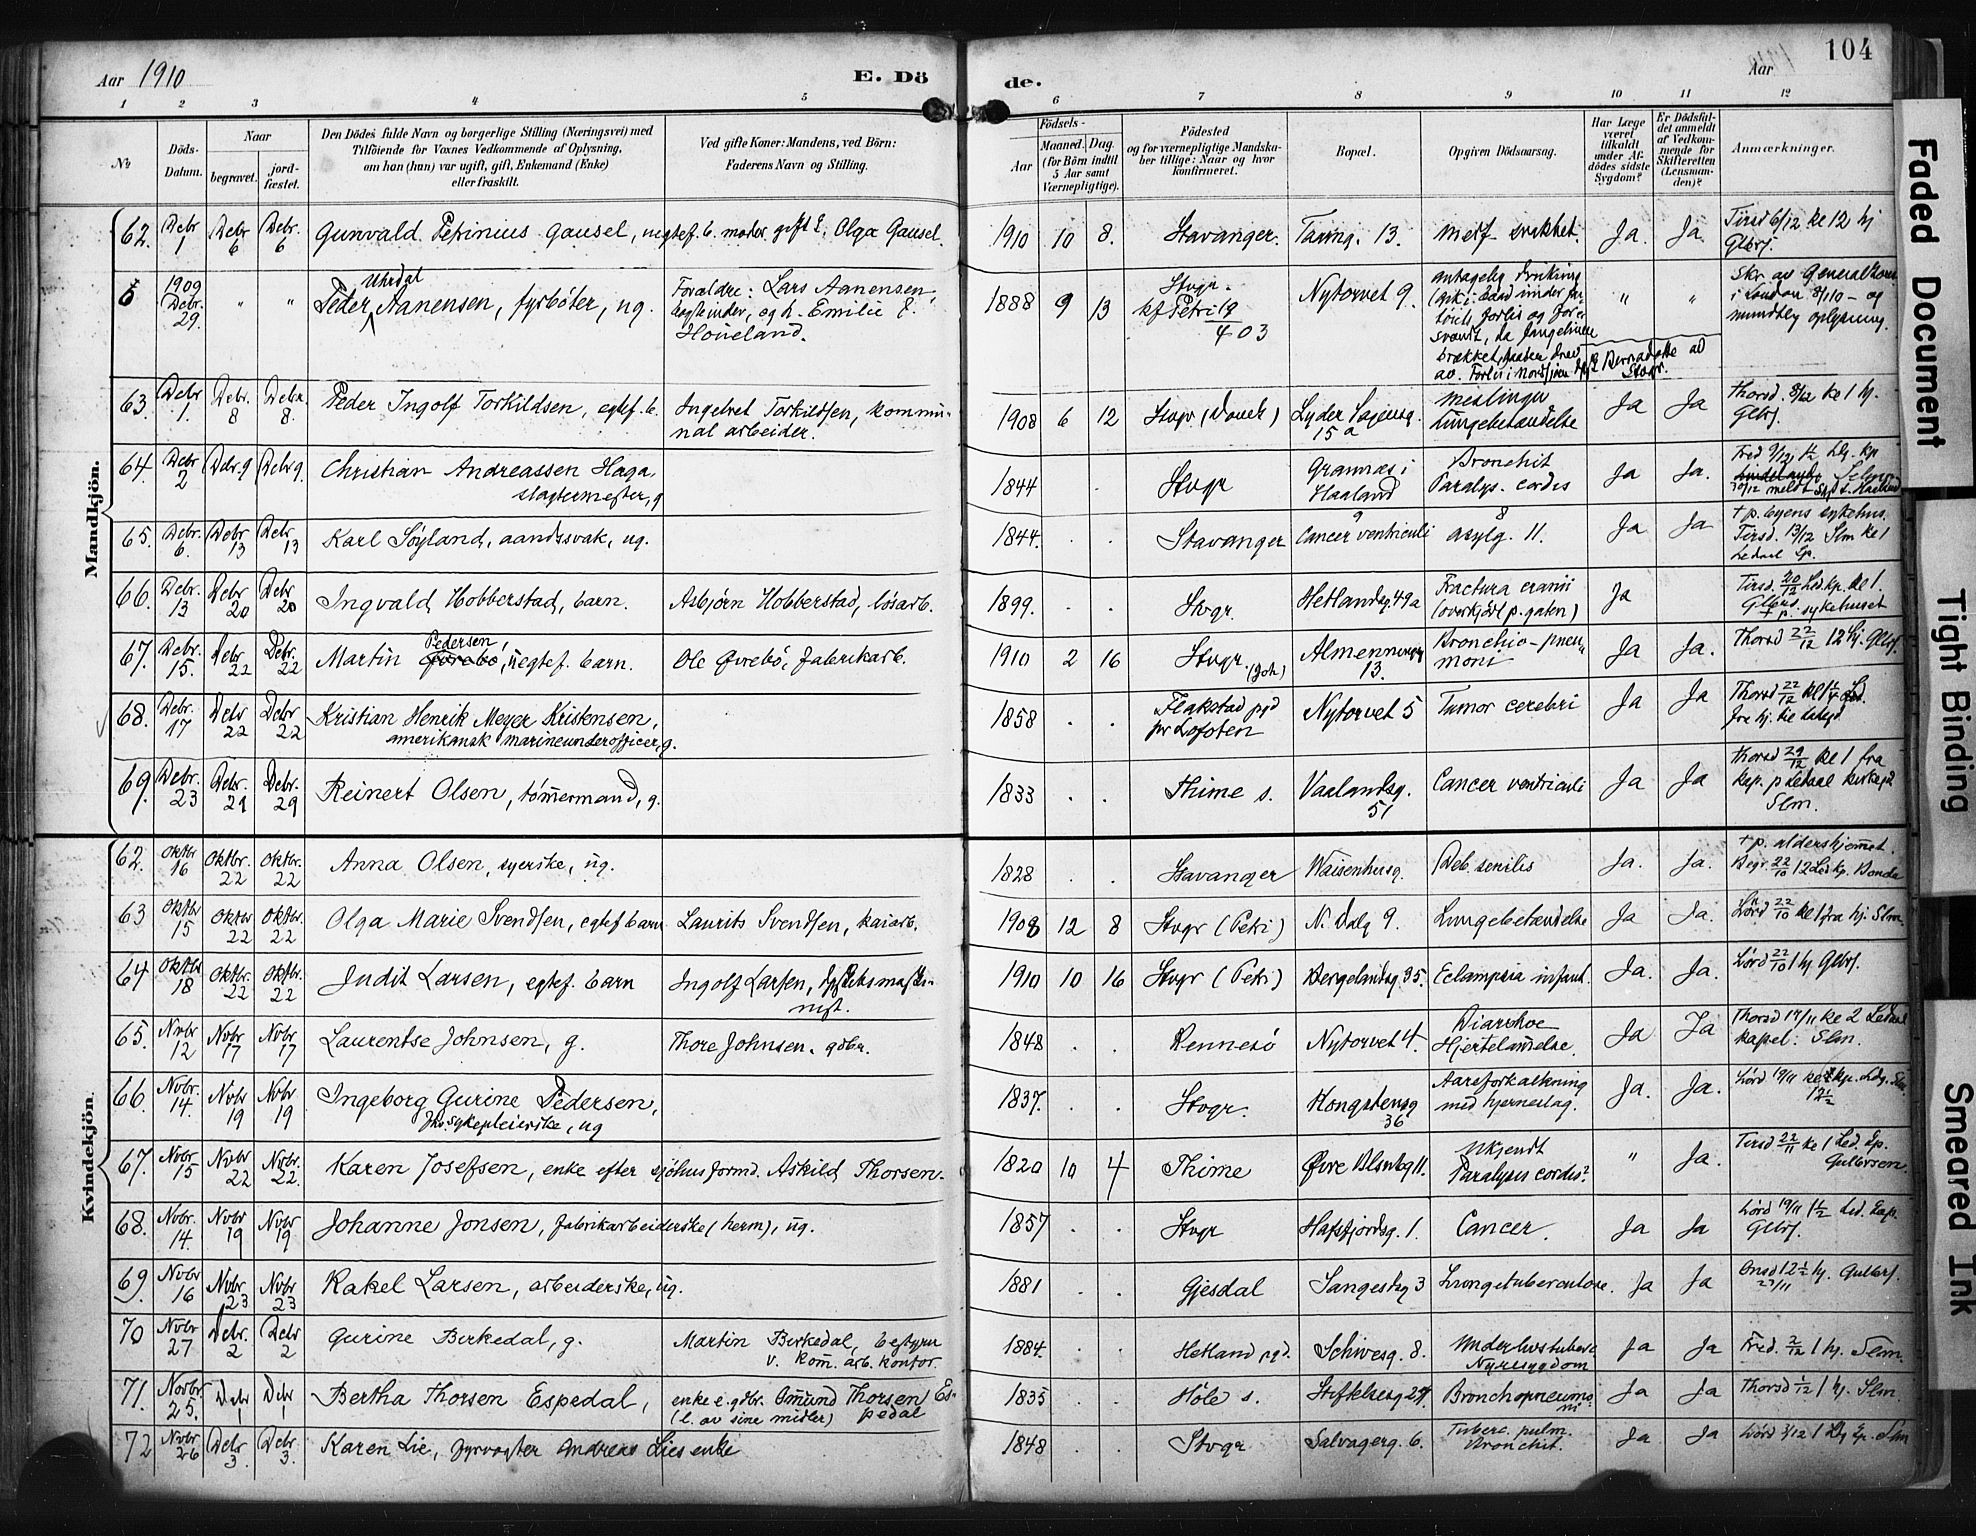 Aar 1910 E. Dö de. Aar 104
1 2 3 4 5 6 7 8 9 10 11 12
No
Döds-Datum.
Naar
begravet.
jord-fæstet.
Den Dödes fulde Navn og borgerlige Stilling (Næringsvei) med
Tilföiende for Voxnes Vedkommende af Oplysning,
om han (hun) var ugift, gift, Enkemand (Enke)
eller fraskilt.
Ved gifte Koner: Mandens, ved Börn:
Faderens Navn og Stilling.
Födsels-
Aar
Maaned. Dag.
(for Börn indtil
5 Aar samt
Værnepligtige).
Födested
og for værnepligtige Mandska-
ber tillige: Naar og hvor
konfirmeret.
Bopæl.
Opgiven Dödsaarsag.
Har Læge
været
tilkaldt
under Af-
dödes sidste
Sygdom?
Er Dödsfal-
det anmeldt
af Vedkom-
mende for
Skifteretten
(Lensman-
den)?
Anmærkninger.
Mandkjön.
62. Debr 1 Debr 6 Debr. 6 Gunvald Petrinius Gausel, uegtef. b. moder gift E. Olga Gausel. 1910 10 8. Stavanger. 13. svakhet. Ja. Ja. Tirsd 6/12 kl 12 hj
1909 Debr. 29. " " Peder Uhrdal Aanensen, fyrböter, ug. Forældre: Lars Aanensen, og h. Emilie F. Houeland. 1888 9 13 Stvgr. kf Petri 19/4 03 Nytorvet 9. " "
63. Debr 1. Debr. 8 Debr. 8. Peder Ingolf Torkildsen, egtef. b. Ingebret Torkildsen, kommu-
nal arbeider. 1908 6 12 Stvgr 15 a meslinger
Lungebetændelse Ja Ja Thorsd. 8/12 kl 1 hj.
64. Debr 2 Debr 9 Debr 9. Christian Andreassen Haga,
slagtermester, g 1844 . Stvgr Grannæs i
Haaland Bronchit
Paralys. cordis Ja Ja.
65. Debr. 6. Debr 13 Debr 13 Karl Söyland, aandssvak, ug. 1844. . . Stavanger Cancer ventriculi asylg. 11. Ja Ja + p. byens sykehus.
Tirsd. 13/12 Slm kl 1
Ledaal Cp.
66. Debr. 13 Debr 20 Debr 20 Ingvald Hobberstad, barn. Asbjörn Hobberstad, lösarb. 1899. . . Stvgr. Hetlandsg. 49a Fractura cranii
(overkjört p. gaten) Ja Tirsd. 20/12 Led.kp. kl 1.
+ p. sykehuset
67. Debr. 15. Debr 22 Debr. 22 Martin Pedersen, Övrebö, uegtef. barn. Ole Övrebö, fabrikarb. 1910 2 16 Stvgr. (Joh) Almenningg
13. Bronchio-pneu-
moni Ja Ja Thorsd 22/12 12 hj.
68. Debr. 17 Debr 22 Debr 22 Kristian Henrik Meyer Kristensen,
amerikansk marineunderofficer, g. 1858 . . Flakstad pgd
pr Lofoten Nytorvet 5 Tumor cerebri Ja Ja Thorsd 22/12
69. Debr. 23 Debr. 29 Debr. 29 Reinert Olsen, tömmermand, g. 1833 . . Thime s. Vaalandsg.
51 Cancer ventriculi Ja Ja Thorsd 29/12 kl 1 fra
kap. p Ledaal kirkegd
Slm.
Kvindekjön.
62. Oktbr 16 Oktbr. 22 Oktbr. 22 Anna Olsen, syerske, ug. 1828 . . Stavanger Waisenhusg. Deb. senilis Ja. Ja. + p. aldershjemmet.
Begr. 22/10 12 Led kp.
63 Oktbr 15 Oktbr 22 Oktbr. 22 Olga Marie Svendsen, egtef. barn Laurits Svendsen, kaiarb. 1908 12 8 Stvgr (Petri) N. Dalg 9. Lungebetændelse Ja Ja. Lörd 22/10 kl 1 fra hj. Slm.
64 Oktbr 18 Oktbr. 22 Oktbr. 22 Judit Larsen, egtef. barn Ingolf Larsen, 1910 10 16 Stvgr (Petri) Bergelandsg 35. Eclampsia infant. Ja. Ja. Lörd 22/10 1 hj
65. Novbr 12 Novbr 17 Novbr 17 Laurentse Johnsen, g. Thore Johnsen, gdbr. 1848 . . Rennesö Nytorvet 4. Diarrhoe
Hjertelamelse. Ja Ja Thorsd 17/11 kl 2 Ledaal
kapel. Slm.
66. Novbr. 14. Novbr 19 Novbr 19 Ingeborg Gurine Pedersen,
sykepleierske, ug 1837. . . Stvgr. Kongstensg
36 Aareforkalkning
med hjerneslag. Ja. Ja. Lörd 19/11
67. Novbr 15 Novbr 22 Novbr. 22. Karen Josefsen, enke efter sjöhusformd. Askild Thorsen. 1820 10 4 Thime Övre 11. Ukjendt
Paralysis cordis? " Ja. Tirsd 22/11 kl 1 Led. Cp.
68. Novbr. 14. Novbr 19 Novbr 19 Johanne Jonsen, fabrikarbeiderske (herm), ug. 1857 . . Stvgr Hafsfjordsg. 1. Cancer. Ja Ja Lörd 19/11 1½ Led. Cap.
69. Novbr 16 Novbr 23 Novbr 23 Rakel Larsen, arbeiderske, ug. 1881 . . Gjesdal 3 Lungetuberculose. Ja Ja Onsd 12½ hj.
23/11
70 Novbr 27 Debr. 2 Debr 2 Gurine Birkedal, g. Martin Birkedal, bestyrer
v. kom. arb. kontor. 1884. . . Hetland pgd. Schivesg. 8. Underlivstuberc
Nyresygdom Ja Ja Fred. 2/12 1 hj. Slm.
71. Novbr. 25. Debr 1 Debr 1 Bertha Thorsen Espedal, enke e. gdbr. Omund Thorsen Es-
(l. av sine midler) pedal 1835 . . Höle s. Stiftelsesg 27 Bronchopneumo-
ni Ja Ja Thorsd 1/12 1 hj. Slm.
72 Novbr. 26 Debr. 3 Debr. 3. Karen Lie, fyrvogter Andreas Lies enke 1848 . . Stvgr Salvagerg. 6. Tuberc. pulm.
Bronchit. Ja Ja Lörd 3/12 1 Slm
Faded Document
Tight Binding
Smeared Ink